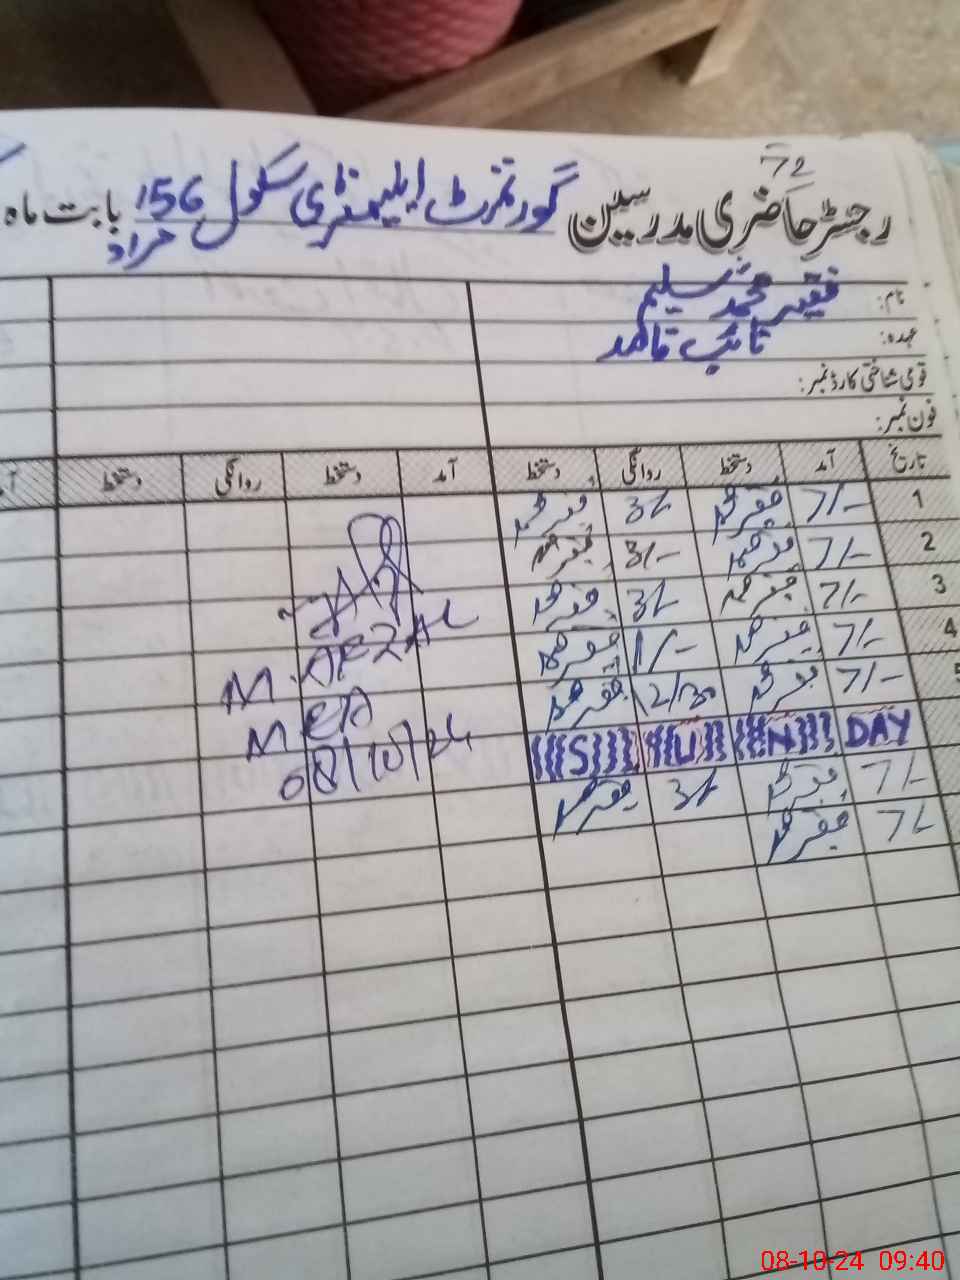 72
رجسٹر حاضری مدرسین گورنمنٹ ایلیمنٹری سکول 156 بابت ماہ
مراد
نام: فقیر محمد سلیم
عہدہ: نائب قاصد
قومی شناختی کارڈ نمبر:
فون نمبر:
تاریخ آمد دستخط روانگی دستخط آمد دستخط روانگی دستخط
1 7/- فقیر محمد 3/- فقیر محمد
2 7/- فقیر محمد 3/- فقیر محمد
3 7/- فقیر محمد 3/- فقیر محمد
4 7/- فقیر محمد 1/- فقیر محمد
5 7/- فقیر محمد 12/30 فقیر محمد
SUN DAY
7/- فقیر محمد 3/- فقیر محمد
7/- فقیر محمد
M. AFZAL
MEA
08/10/24
08-10-24 09:40